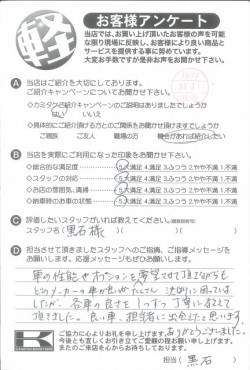 軽
お客様アンケート
当店では、お買い上げ頂いたお客様の声を可能
な限り現場に反映し、お客様により良い商品と
サービスを提供する事に努めています。
大変お手数ですが是非お声をお聞かせ下さい。
A 当店はご紹介を大切にしております。
ご紹介キャンペーンについてお聞かせ下さい。
◇カミタケご紹介キャンペーンのご説明はありましたでしょうか
はい いいえ
◇具体的にご紹介頂ける方とのご関係をお聞かせ頂けますでしょうか
ご親族 ご友人 職場の方
B 当店を実際にご利用になった印象をお聞かせ下さい。
◇総合的な満足度 5.大満足 4.満足 3.ふつう 2.やや不満 1.不満
◇スタッフの対応 5.大満足 4.満足 3.ふつう 2.やや不満 1.不満
◇お店の雰囲気、清掃 5.大満足 4.満足 3.ふつう 2.やや不満 1.不満
◇納車時のお車の状態 5.大満足 4.満足 3.ふつう 2.やや不満 1.不満
C 評価したいスタッフがいれば教えてください。
スタッフ名( 黒石様 )
D 担当させて頂きましたスタッフへのご指摘、ご指導メッセージを
お願いします。応援メッセージもぜひお願いします。
車の性能やオプションを
どのメーカーの車が良いか
各車の良さを1つずつ丁寧に教えて
頂てました。良い車、担当者に出会えたと思います。
ありがとうございました。
ご協力に心よりお礼を申し上げます。
今後とも宜しくお引き立てご愛顧の程お願い申し上げます。
またのご来店を心よりお待ちしております。
担当( 黒石 )